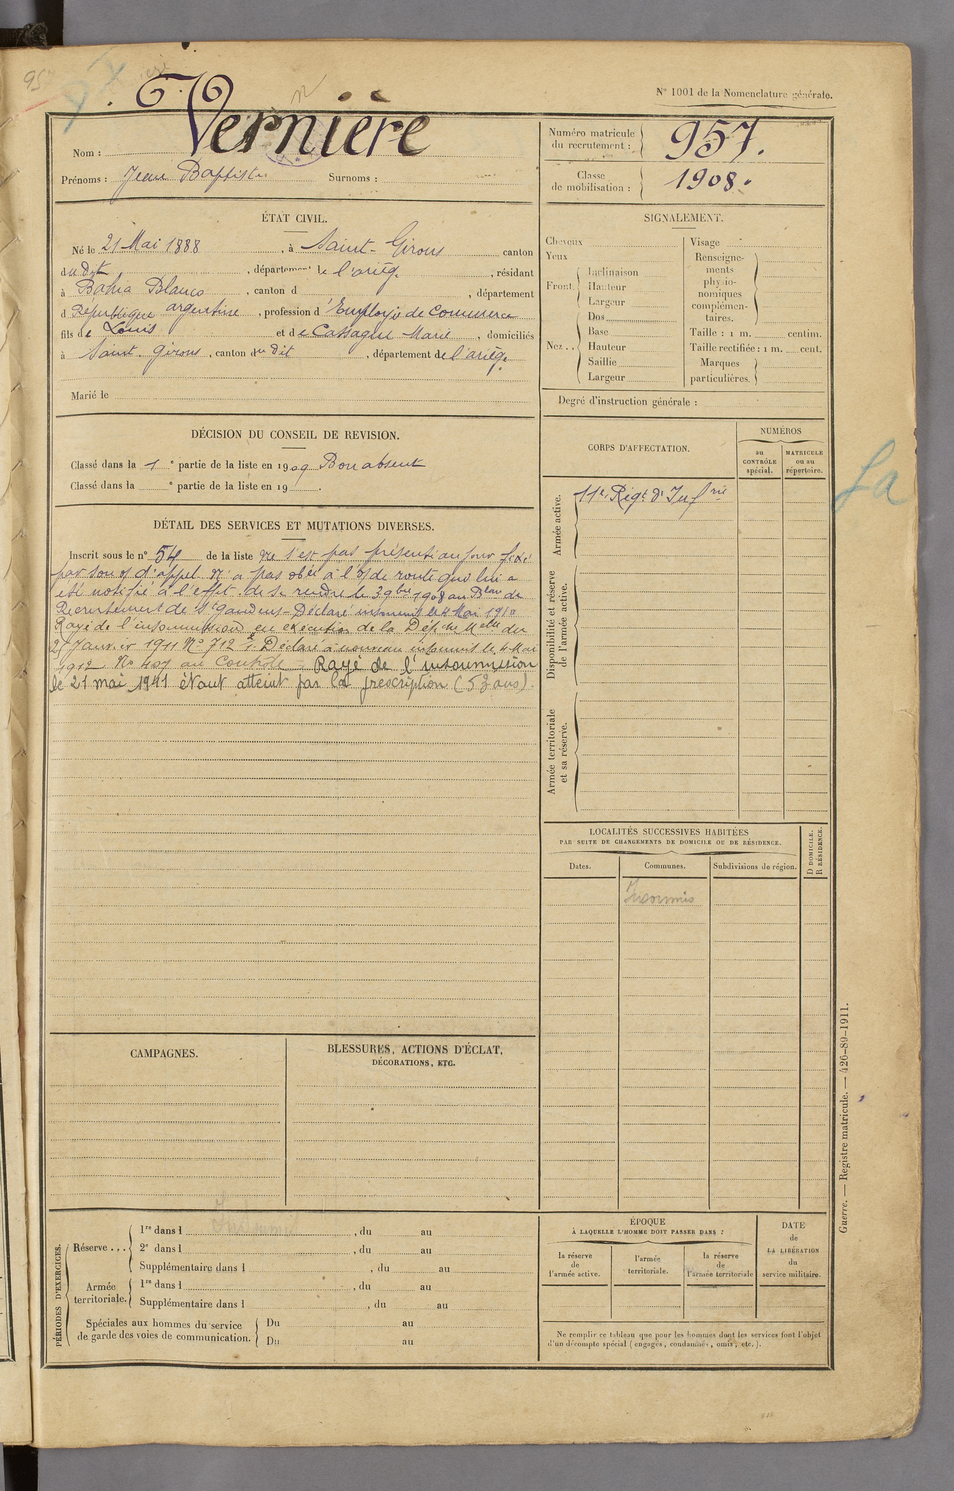 95
N° 1001 de la Nomenclature générale.
Nom : Vernière
Prénoms : Jean Baptiste Surnoms :
Numéro matricule du recrutement : 957.
Classe de mobilisation : 1908.
ÉTAT CIVIL.
Né le 21 Mai 1888, à Saint-Girons canton
du Dit, département de l'ariège, résidant
à Bahia Blanca, canton d , département
d République argentine, profession d'Employé de commerce
fils de Louis et de Cassagne Marie, domiciliés
à Saint-Girons, canton du dit, département de l'ariège.
Marié le
SIGNALEMENT.
Cheveux
Yeux
Front.
Inclinaison
Hauteur
Largeur
Nez ..
Dos
Base
Hauteur
Saillie
Largeur
Visage
Renseignements physionomiques complémentaires.
Taille : 1 m. centim.
Taille rectifiée : 1 m. cent.
Marques particulières.
Degré d'instruction générale :
DÉCISION DU CONSEIL DE REVISION.
Classé dans la 1e partie de la liste en 1909 Bon absent
Classé dans la e partie de la liste en 19 .
CORPS D'AFFECTATION.
NUMÉROS
au CONTRÔLE spécial.
MATRICULE ou au répertoire.
Armée active.
11e Régt d'Infrie
Disponibilité et réserve de l'armée active.
Armée territoriale et sa réserve.
La
DÉTAIL DES SERVICES ET MUTATIONS DIVERSES.
Inscrit sous le n° 54 de la liste Ne s'est pas présenté au jour fixé
par son o/ d'appel. N'a pas obéi à l'o/ de route qui lui a
été notifié à l'effet de se rendre le 3 9bre 1908 au Beau de
Recrutement de St Gaudens - Déclaré insoumis le 4 Mai 1910
Rayé de l'insoumission en exécution de la Dépche Melle du
27 Janvier 1911 N° 712 Déclaré à nouveau insoumis le 4 Mai
1912 N° 407 au Contrôle - Rayé de l'insoumission
le 21 mai 1941 étant atteint par la prescription (53 ans).
LOCALITÉS SUCCESSIVES HABITÉES
PAR SUITE DE CHANGEMENTS DE DOMICILE OU DE RÉSIDENCE.
Dates.
Communes.
Subdivisions de région.
D DOMICILE. R RÉSIDENCE.
Insoumis
CAMPAGNES.
BLESSURES, ACTIONS D'ÉCLAT, DÉCORATIONS, ETC.
PÉRIODES D'EXERCICES.
Insoumis
Réserve ...
1re dans l , du au
2e dans l , du au
Supplémentaire dans l , du au
Armée territoriale.
1re dans l , du au
Supplémentaire dans l , du au
Spéciales aux hommes du service de garde des voies de communication.
Du au
Du au
ÉPOQUE
À LAQUELLE L'HOMME DOIT PASSER DANS :
la réserve de l'armée active.
l'armée territoriale.
la réserve de l'armée territoriale
DATE de LA LIBÉRATION du service militaire.
Ne remplir ce tableau que pour les hommes dont les services font l'objet
d'un décompte spécial (engagés, condamnés, omis, etc.).
Guerre. — Registre matricule. — 426-89-1911.